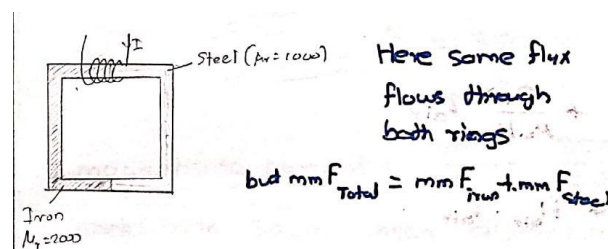 I
Steel (μr=1000)
Iron
μr=2000
Here some flux
flows through
both rings.
but mmF Total = mmF iron + mmF steel